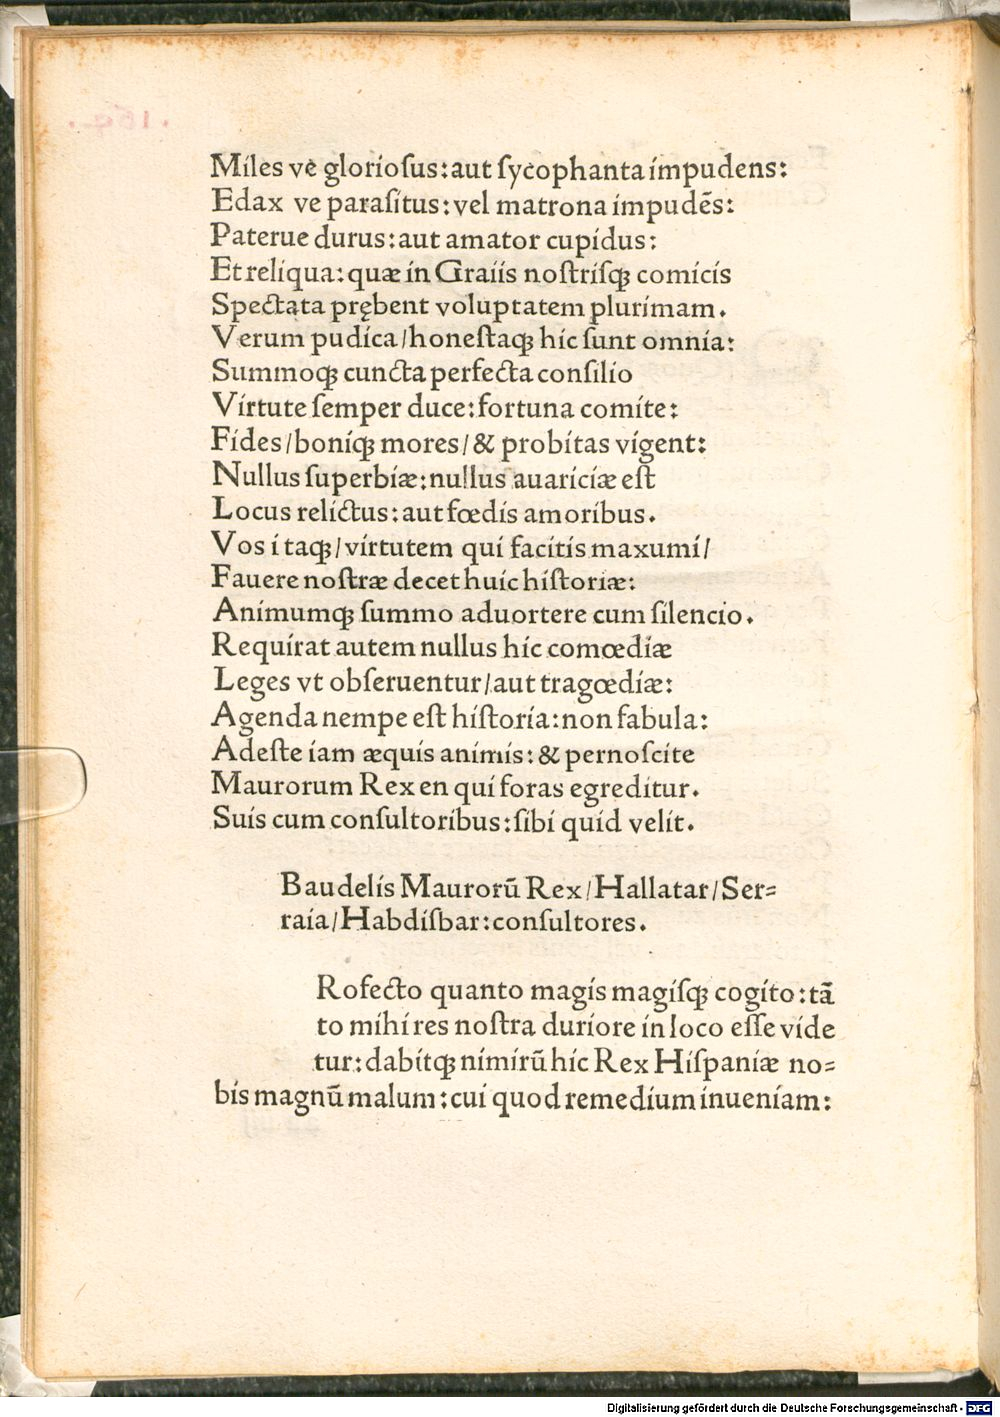 Miles ve gloriosus:aut sycophanta impudens:
Edax ve parasitus:vel matrona impudẽs:
Paterue durus:aut amator cupidus:
Et reliqua:quæ in Graiis nostrisqꝫ comicis
Spectata prębent voluptatem plurimam.
Verum pudica/honestaqꝫ hic sunt omnia:
Summoqꝫ cuncta perfecta consilio
Virtute semper duce:fortuna comite:
Fides/boniqꝫ mores/& probitas vigent:
Nullus superbiæ:nullus auariciæ est
Locus relictus:aut fœdis amoribus.
Vos itaqꝫ/virtutem qui facitis maxumi/
Fauere nostræ decet huic historiæ:
Animumqꝫ summo aduortere cum silencio.
Requirat autem nullus hic comœdiæ
Leges vt obseruentur/aut tragœdiæ:
Agenda nempe est historia:non fabula:
Adeste iam æquis animis:& pernoscite
Maurorum Rex en qui foras egreditur.
Suis cum consultoribus:sibi quid velit.
Baudelis Maurorũ Rex/Hallatar/Ser=
raia/Habdisbar:consultores.
Rofecto quanto magis magisqꝫ cogito:tã
to mihi res nostra duriore in loco esse vide
tur:dabitqꝫ nimirũ hic Rex Hispaniæ no=
bis magnũ malum:cui quod remedium inueniam:
Digitalisierung gefördert durch die Deutsche Forschungsgemeinschaft - DFG